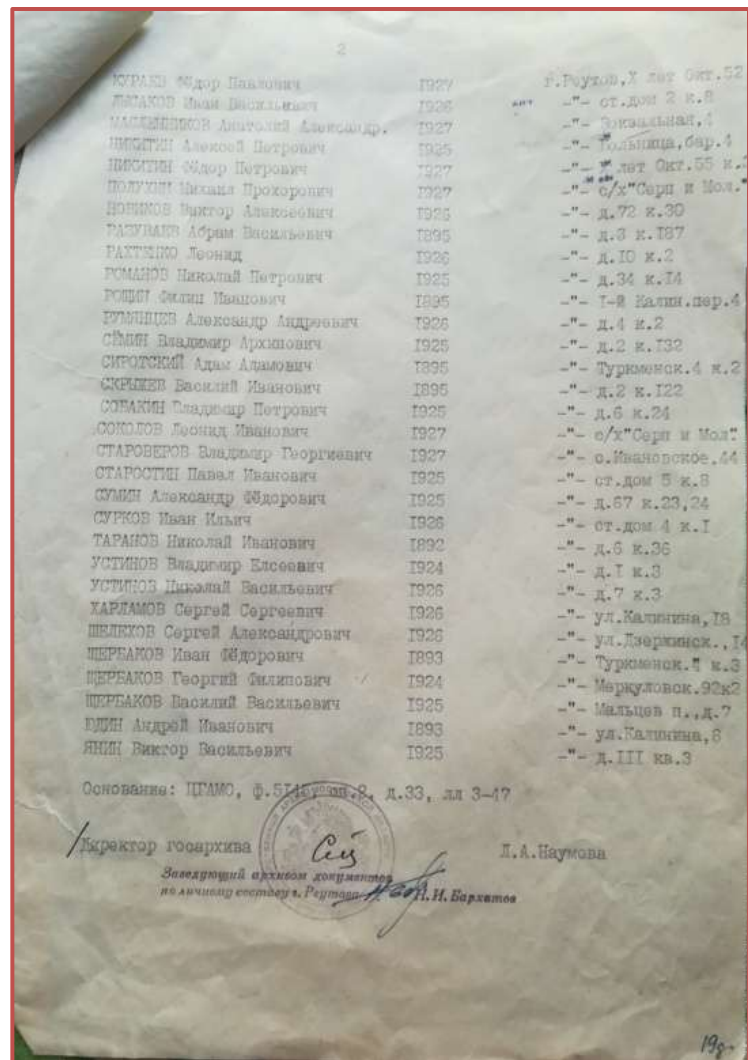 2
КУРАЕВ Фёдор Павлович 1927 г.Реутов,X лет Окт.52
ЛЫСАКОВ Иван Васильевич 1926 -"- ст.дом 2 к.8
МАСЛЕННИКОВ Анатолий Александр. 1927 -"- Вокзальная,4
НИКИТИН Алексей Петрович 1925 -"- Больница,бар.4
НИКИТИН Фёдор Петрович 1927 -"- лет Окт.55 к.
ПОЛУХИН Михаил Прохорович 1927 -"- с/х"Серп и Мол."
НОВИКОВ Виктор Алексеевич 1926 -"- д.72 к.30
РАЗУВАЕВ Абрам Васильевич 1895 -"- д.3 к.I87
РАХТЕНКО Леонид 1926 -"- д.IO к.2
РОМАНОВ Николай Петрович 1925 -"- д.34 к.I4
РОЩИН Филип Иванович 1895 -"- I-й Калин.пер.4
РУМЯНЦЕВ Александр Андреевич 1926 -"- д.4 к.2
СЁМИН Владимир Архипович 1925 -"- д.2 к.I32
СИРОТСКИЙ Адам Адамович 1895 -"- Туркменск.4 к.2
СКРЫЖЕВ Василий Иванович 1895 -"- д.2 к.I22
СОБАКИН Владимир Петрович 1925 -"- д.6 к.24
СОКОЛОВ Леонид Иванович 1927 -"- с/х"Серп и Мол".
СТАРОВЕРОВ Владимир Георгиевич 1927 -"- с.Ивановское,44
СТАРОСТИН Павел Иванович 1925 -"- ст.дом 5 к.8
СУМИН Александр Фёдорович 1925 -"- д.67 к.23,24
СУРКОВ Иван Ильич 1926 -"- ст.дом 4 к.I
ТАРАНОВ Николай Иванович 1892 -"- д.6 к.36
УСТИНОВ Владимир Елсеевич 1924 -"- д.I к.3
УСТИНОВ Николай Васильевич 1926 -"- д.7 к.3
ХАРЛАМОВ Сергей Сергеевич 1926 -"- ул.Калинина,I8
ШЕЛЕХОВ Сергей Александрович 1926 -"- ул.Дзержинск.,I4
ЩЕРБАКОВ Иван Фёдорович 1893 -"- Туркменск. к.3
ЩЕРБАКОВ Георгий Филипович 1924 -"- Меркуловск.92к2
ЩЕРБАКОВ Василий Васильевич 1925 -"- Мальцев п.,д.7
ЮДИН Андрей Иванович 1893 -"- ул.Калинина,8
ЯНИН Виктор Васильевич 1925 -"- д.III кв.3
Основание: ЦГАМО, ф. оп.2, д.33, лл 3-47
Директор госархива Л.А.Наумова
Заведующий архивом документов
по личному составу г. Реутова Н.И. Бархатов